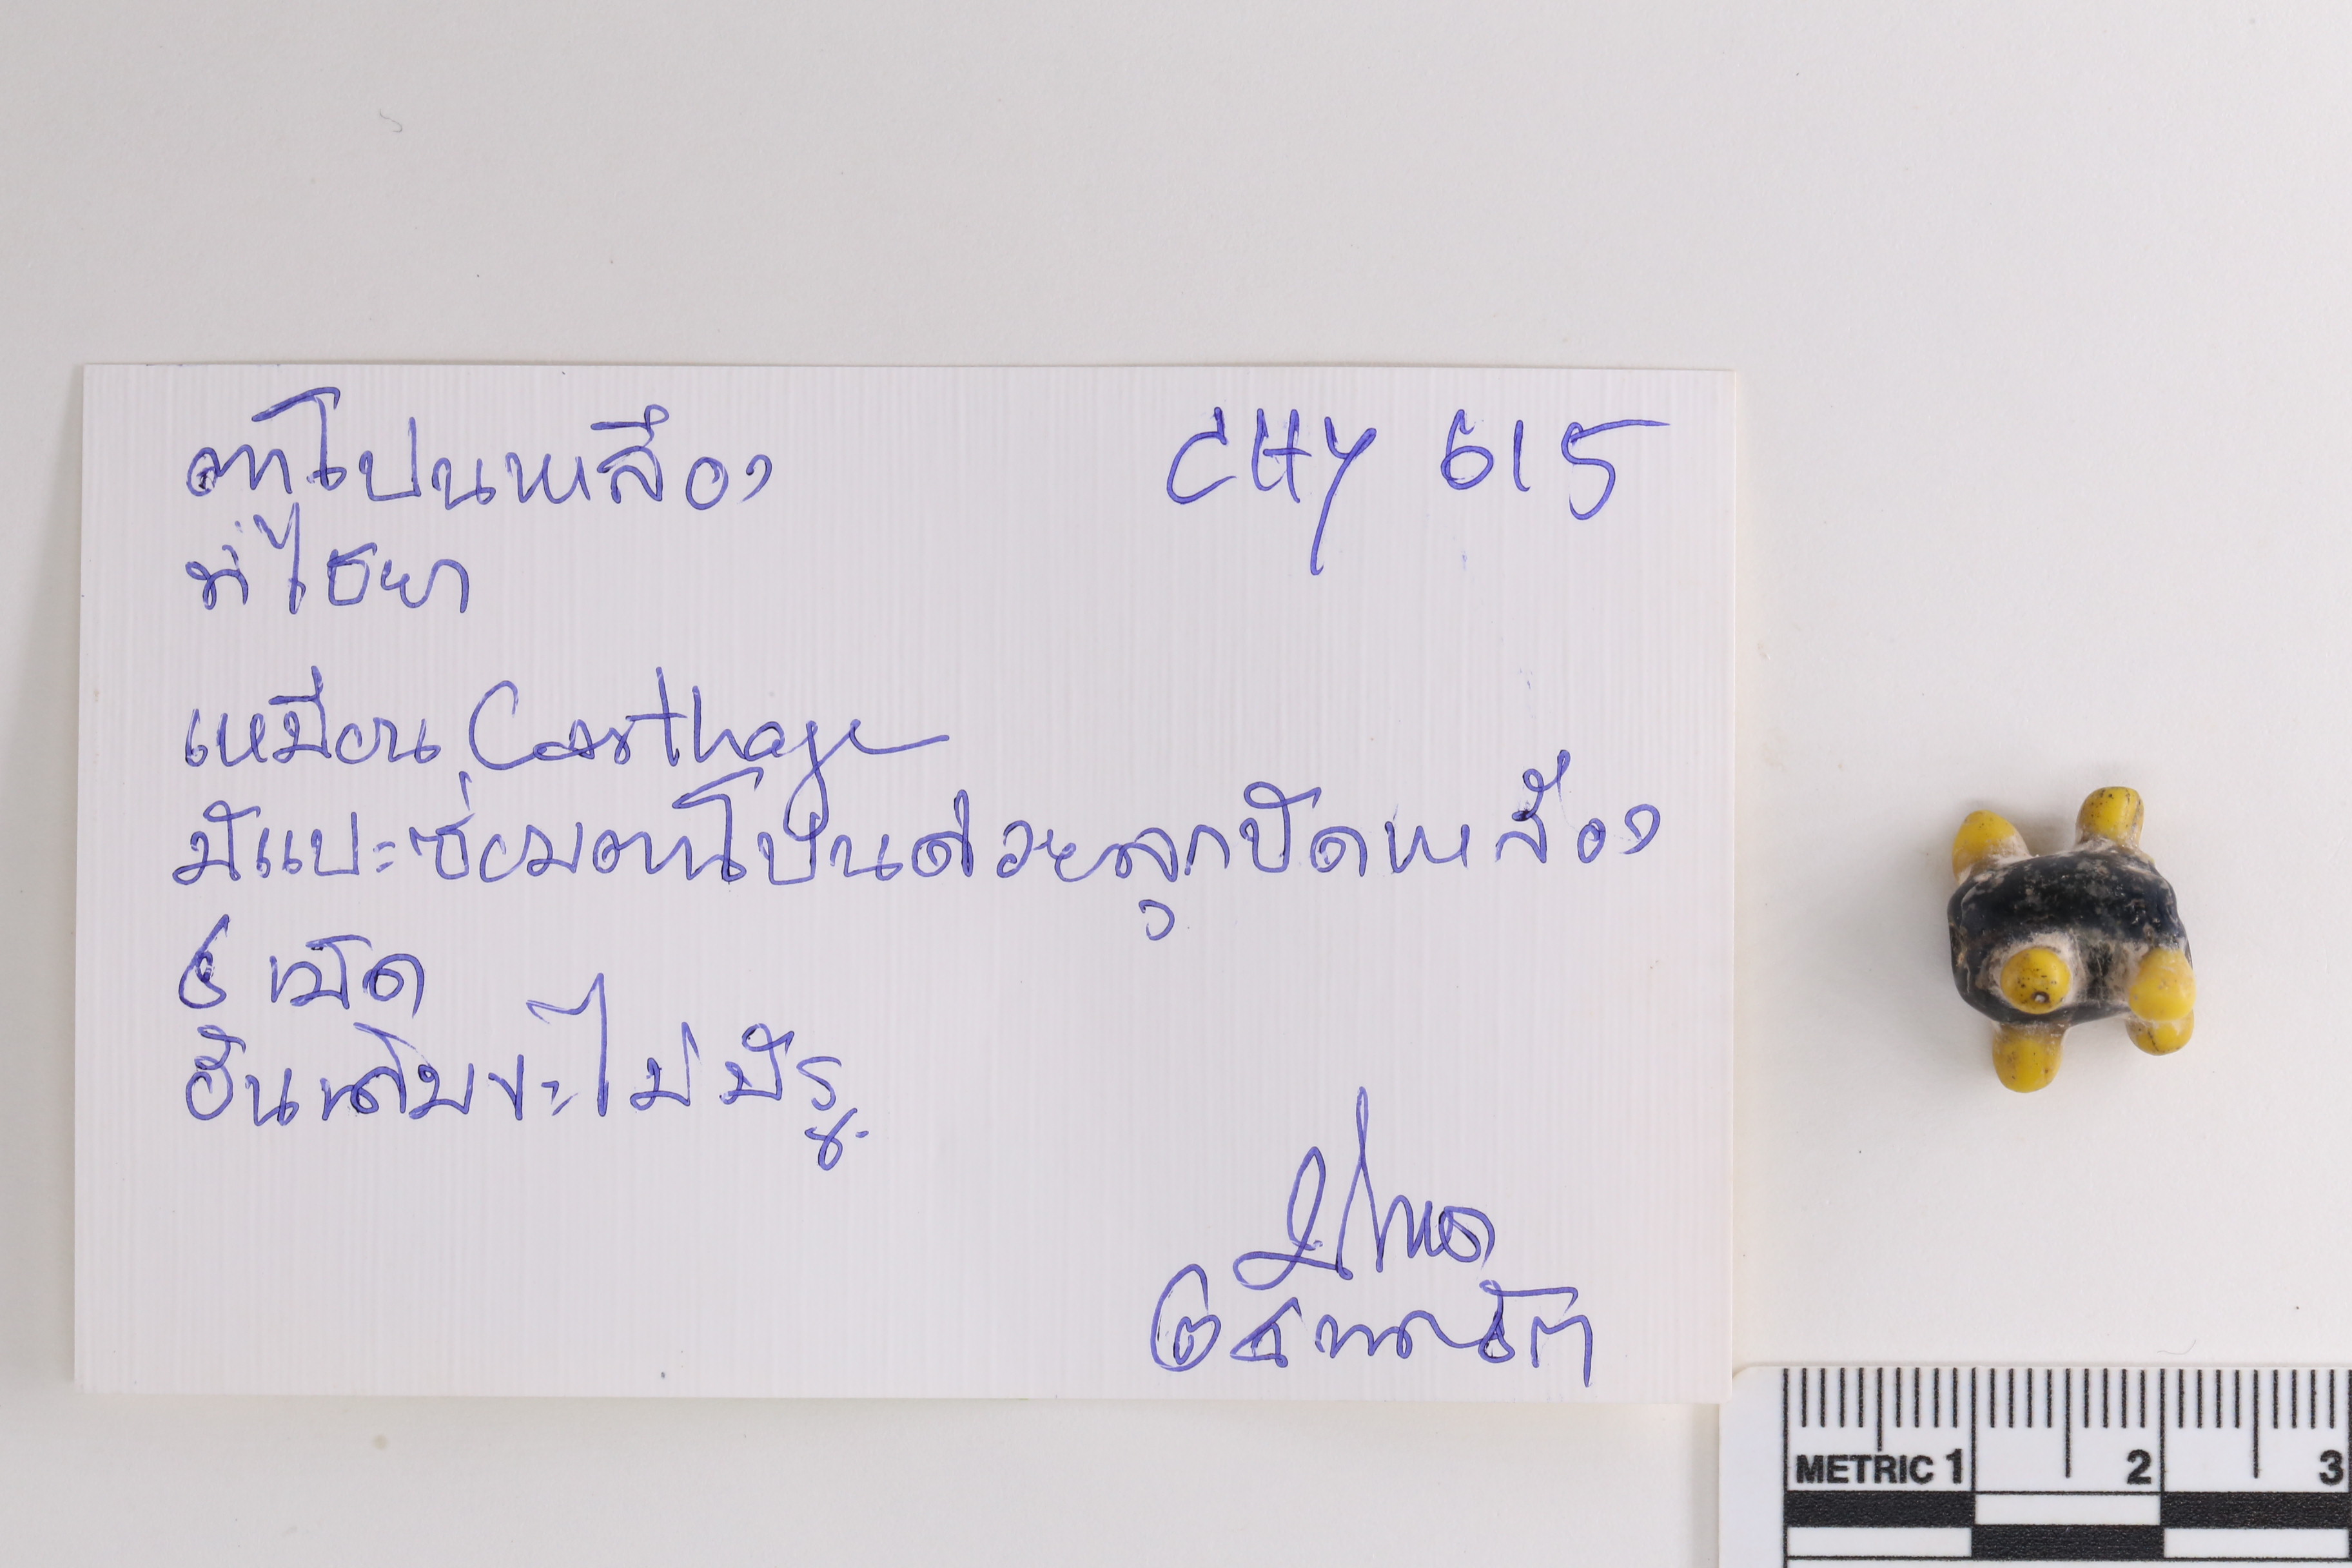 ตาโปนเหลือง CHY 615
ที่ไชยา
เหมือน Carthage
มีแปะซ่อมตาโปนด้วยลูกปัดเหลือง
6 เม็ด
อันเดิมจะไม่มีรู
บัญชา
METRIC 1 2 3